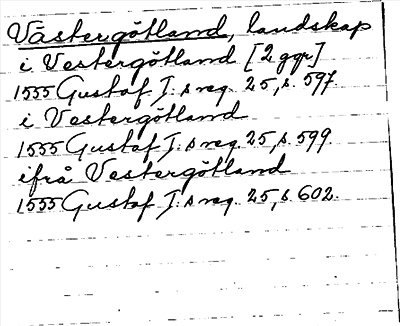 Västergötland, landskap
i Vestergötland [2 ggr]
1555 Gustaf I:s reg. 25, s. 597.
i Vestergötland
1555 Gustaf I:s reg. 25, s. 599.
ifrå Vestergötland
1555 Gustaf I:s reg. 25, s. 602.